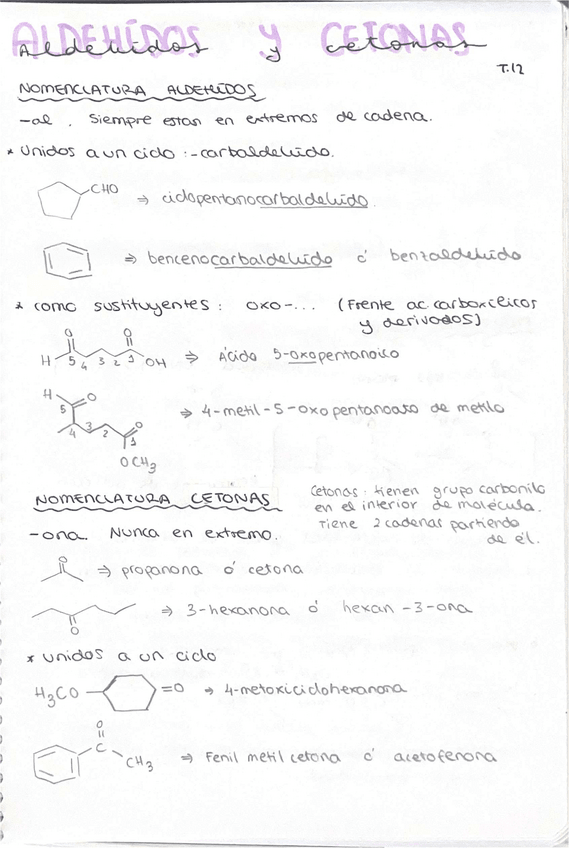 ALDEHÍDOS Y CETONAS
Aldehídos y cetonas
T.12
NOMENCLATURA ALDEHÍDOS
-al. Siempre estan en extremos de cadena.
* Unidos a un ciclo: -carbaldehido.
CHO
⇒ ciclopentanocarbaldehido.
⇒ bencenocarbaldehido ó benzaldehido
* como sustituyentes: oxo-... (Frente ac. carboxílicos
y derivados)
O O
H 5 4 3 2 1 OH ⇒ Ácido 5-oxopentanoico
H
O
5
4 3 2 1 O
⇒ 4-metil-5-oxopentanoato de metilo
OCH3
NOMENCLATURA CETONAS
Cetonas: tienen grupo carbonilo
en el interior de molécula.
Tiene 2 cadenas partiendo
de él.
-ona. Nunca en extremo.
O
⇒ propanona ó cetona
O
⇒ 3-hexanona ó hexan-3-ona
* unidos a un ciclo
H3CO =O ⇒ 4-metoxiciclohexanona
O
C
CH3 ⇒ Fenil metil cetona ó acetofenona